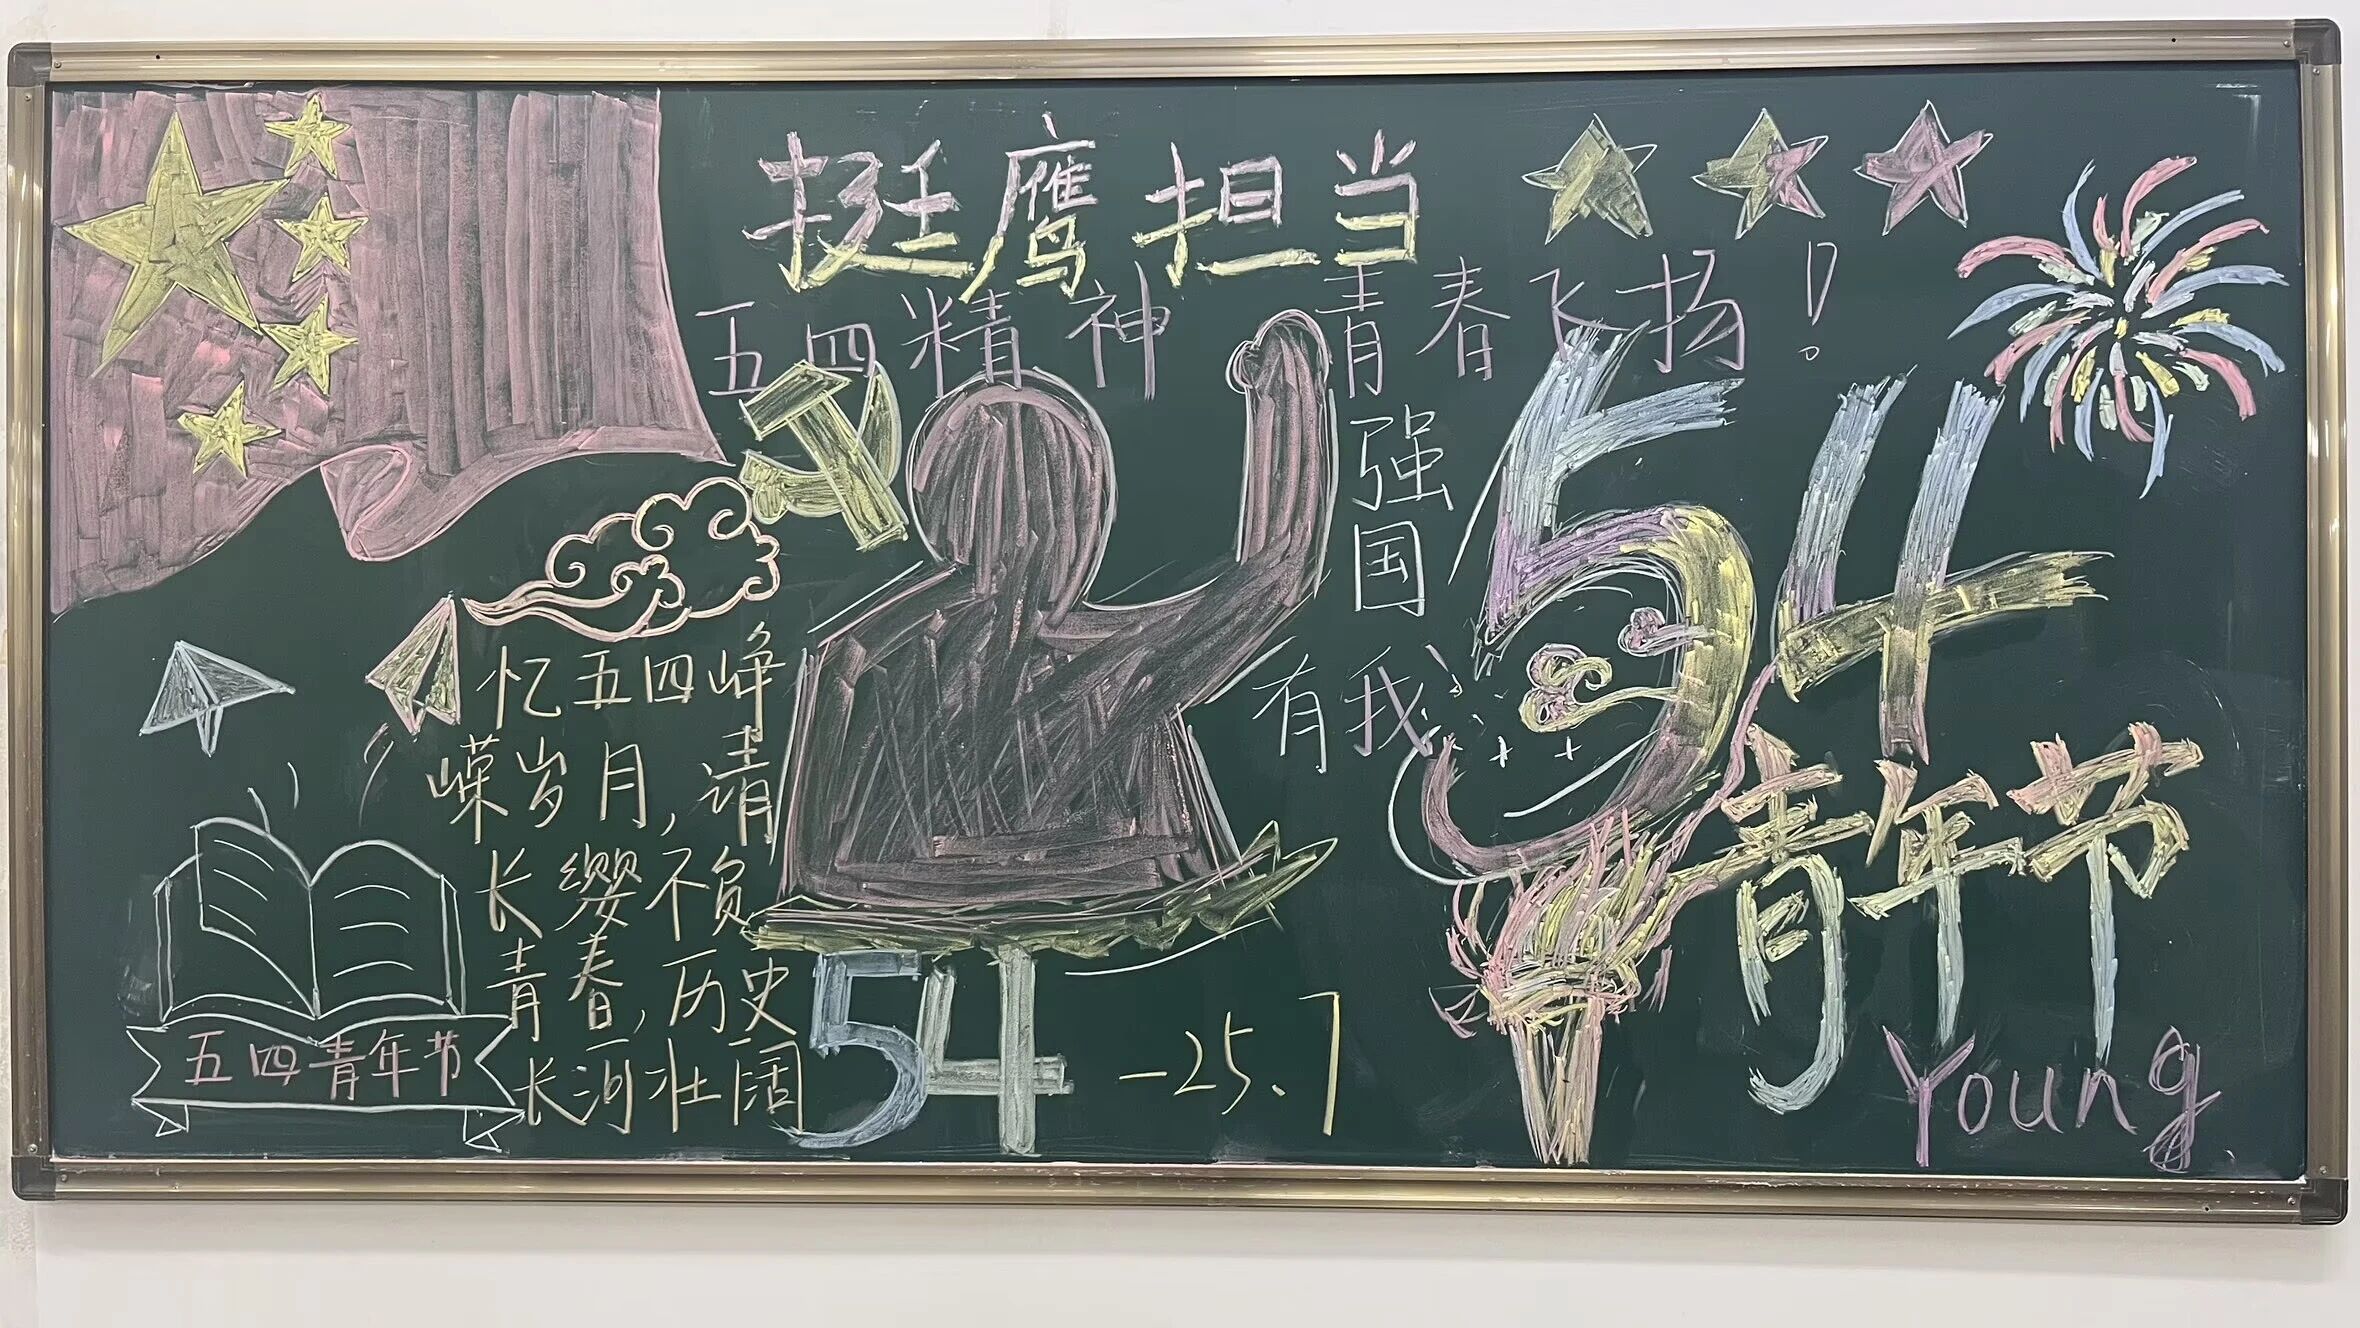 挺鹰担当
五四精神 青春飞扬!
强国
有我
忆五四峥
嵘岁月,请
长缨不负
青春,历史
长河壮阔
五四青年节
54
-25.7
54
青年节
Young